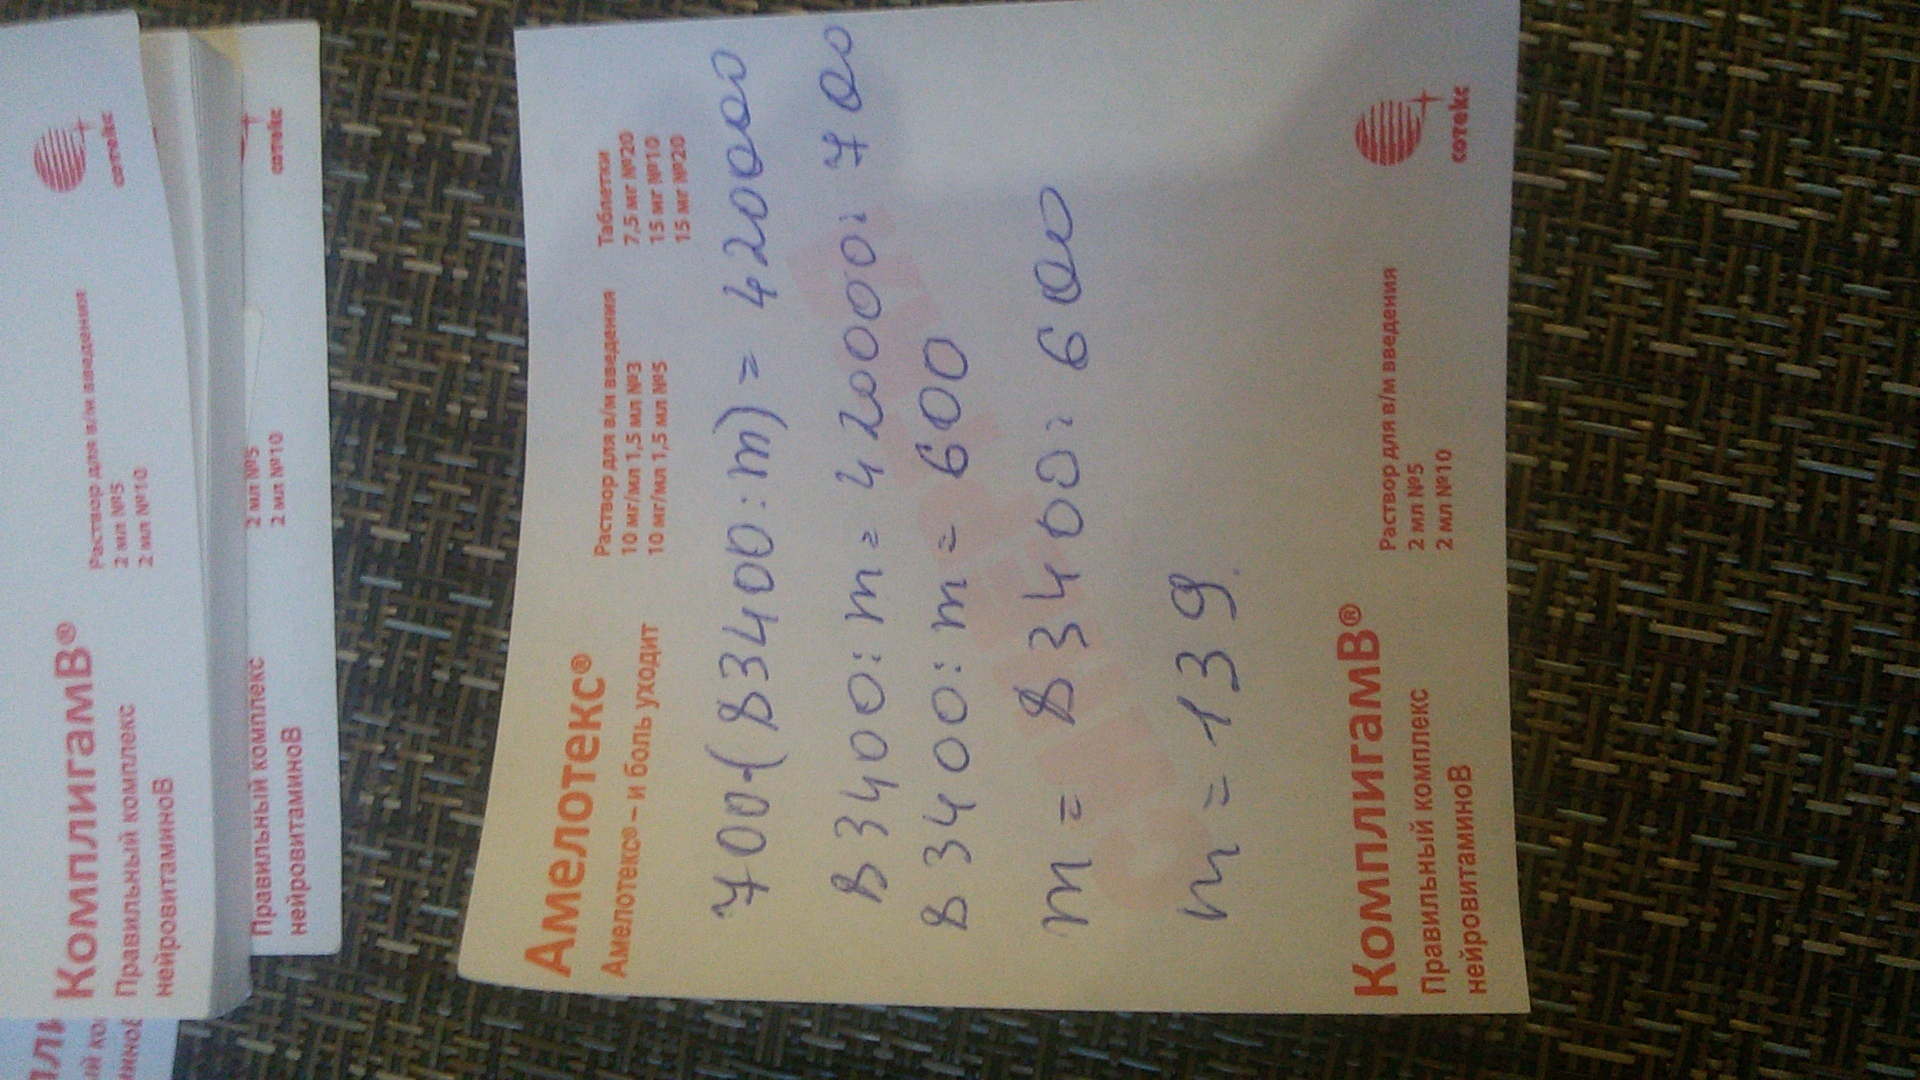 КомплигамВ®
Правильный комплекс
нейровитаминоВ
Раствор для в/м введения
2 мл №5
2 мл №10
сотекс
Правильный комплекс
нейровитаминоВ
2 мл №5
2 мл №10
сотекс
Амелотекс®
Амелотекс® – и боль уходит
Раствор для в/м введения
10 мг/мл 1,5 мл №3
10 мг/мл 1,5 мл №5
Таблетки
7,5 мг №20
15 мг №10
15 мг №20
700·(83400:m)=420000
83400:m=420000:700
83400:m=600
m=83400:600
m=139.
КомплигамВ®
Правильный комплекс
нейровитаминоВ
Раствор для в/м введения
2 мл №5
2 мл №10
сотекс